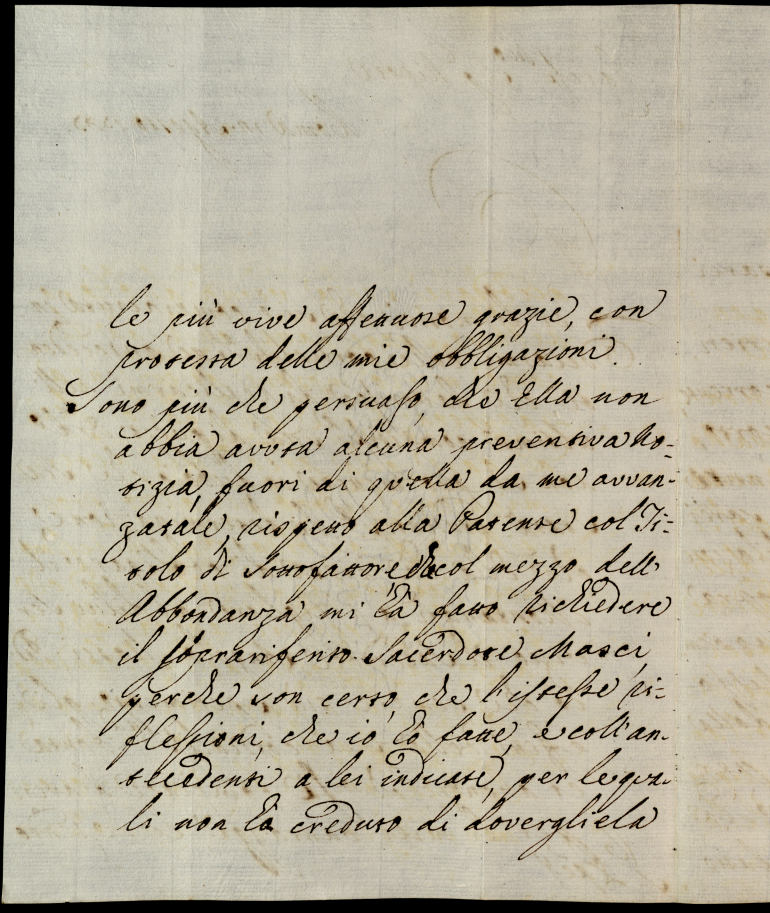 le più vive affettuose grazie, con
protesta delle mie obbligazioni.
Sono più che persuaso, che Ella non
abbia avuta alcuna preventiva No=
tizia, fuori di quella da me avvan=
zatale, rispetto alla Patente col Ti=
tolo di Sottofattore, che col mezzo dell'
Abbondanza mi hà fatto richiedere
il soprariferito Sacerdote Masci,
perche son certo, che l'istesse ri=
flessioni, che io hò fatte, e coll'an=
tecedenti a lei indicate, per le qua=
li non hò creduto di dovergliela